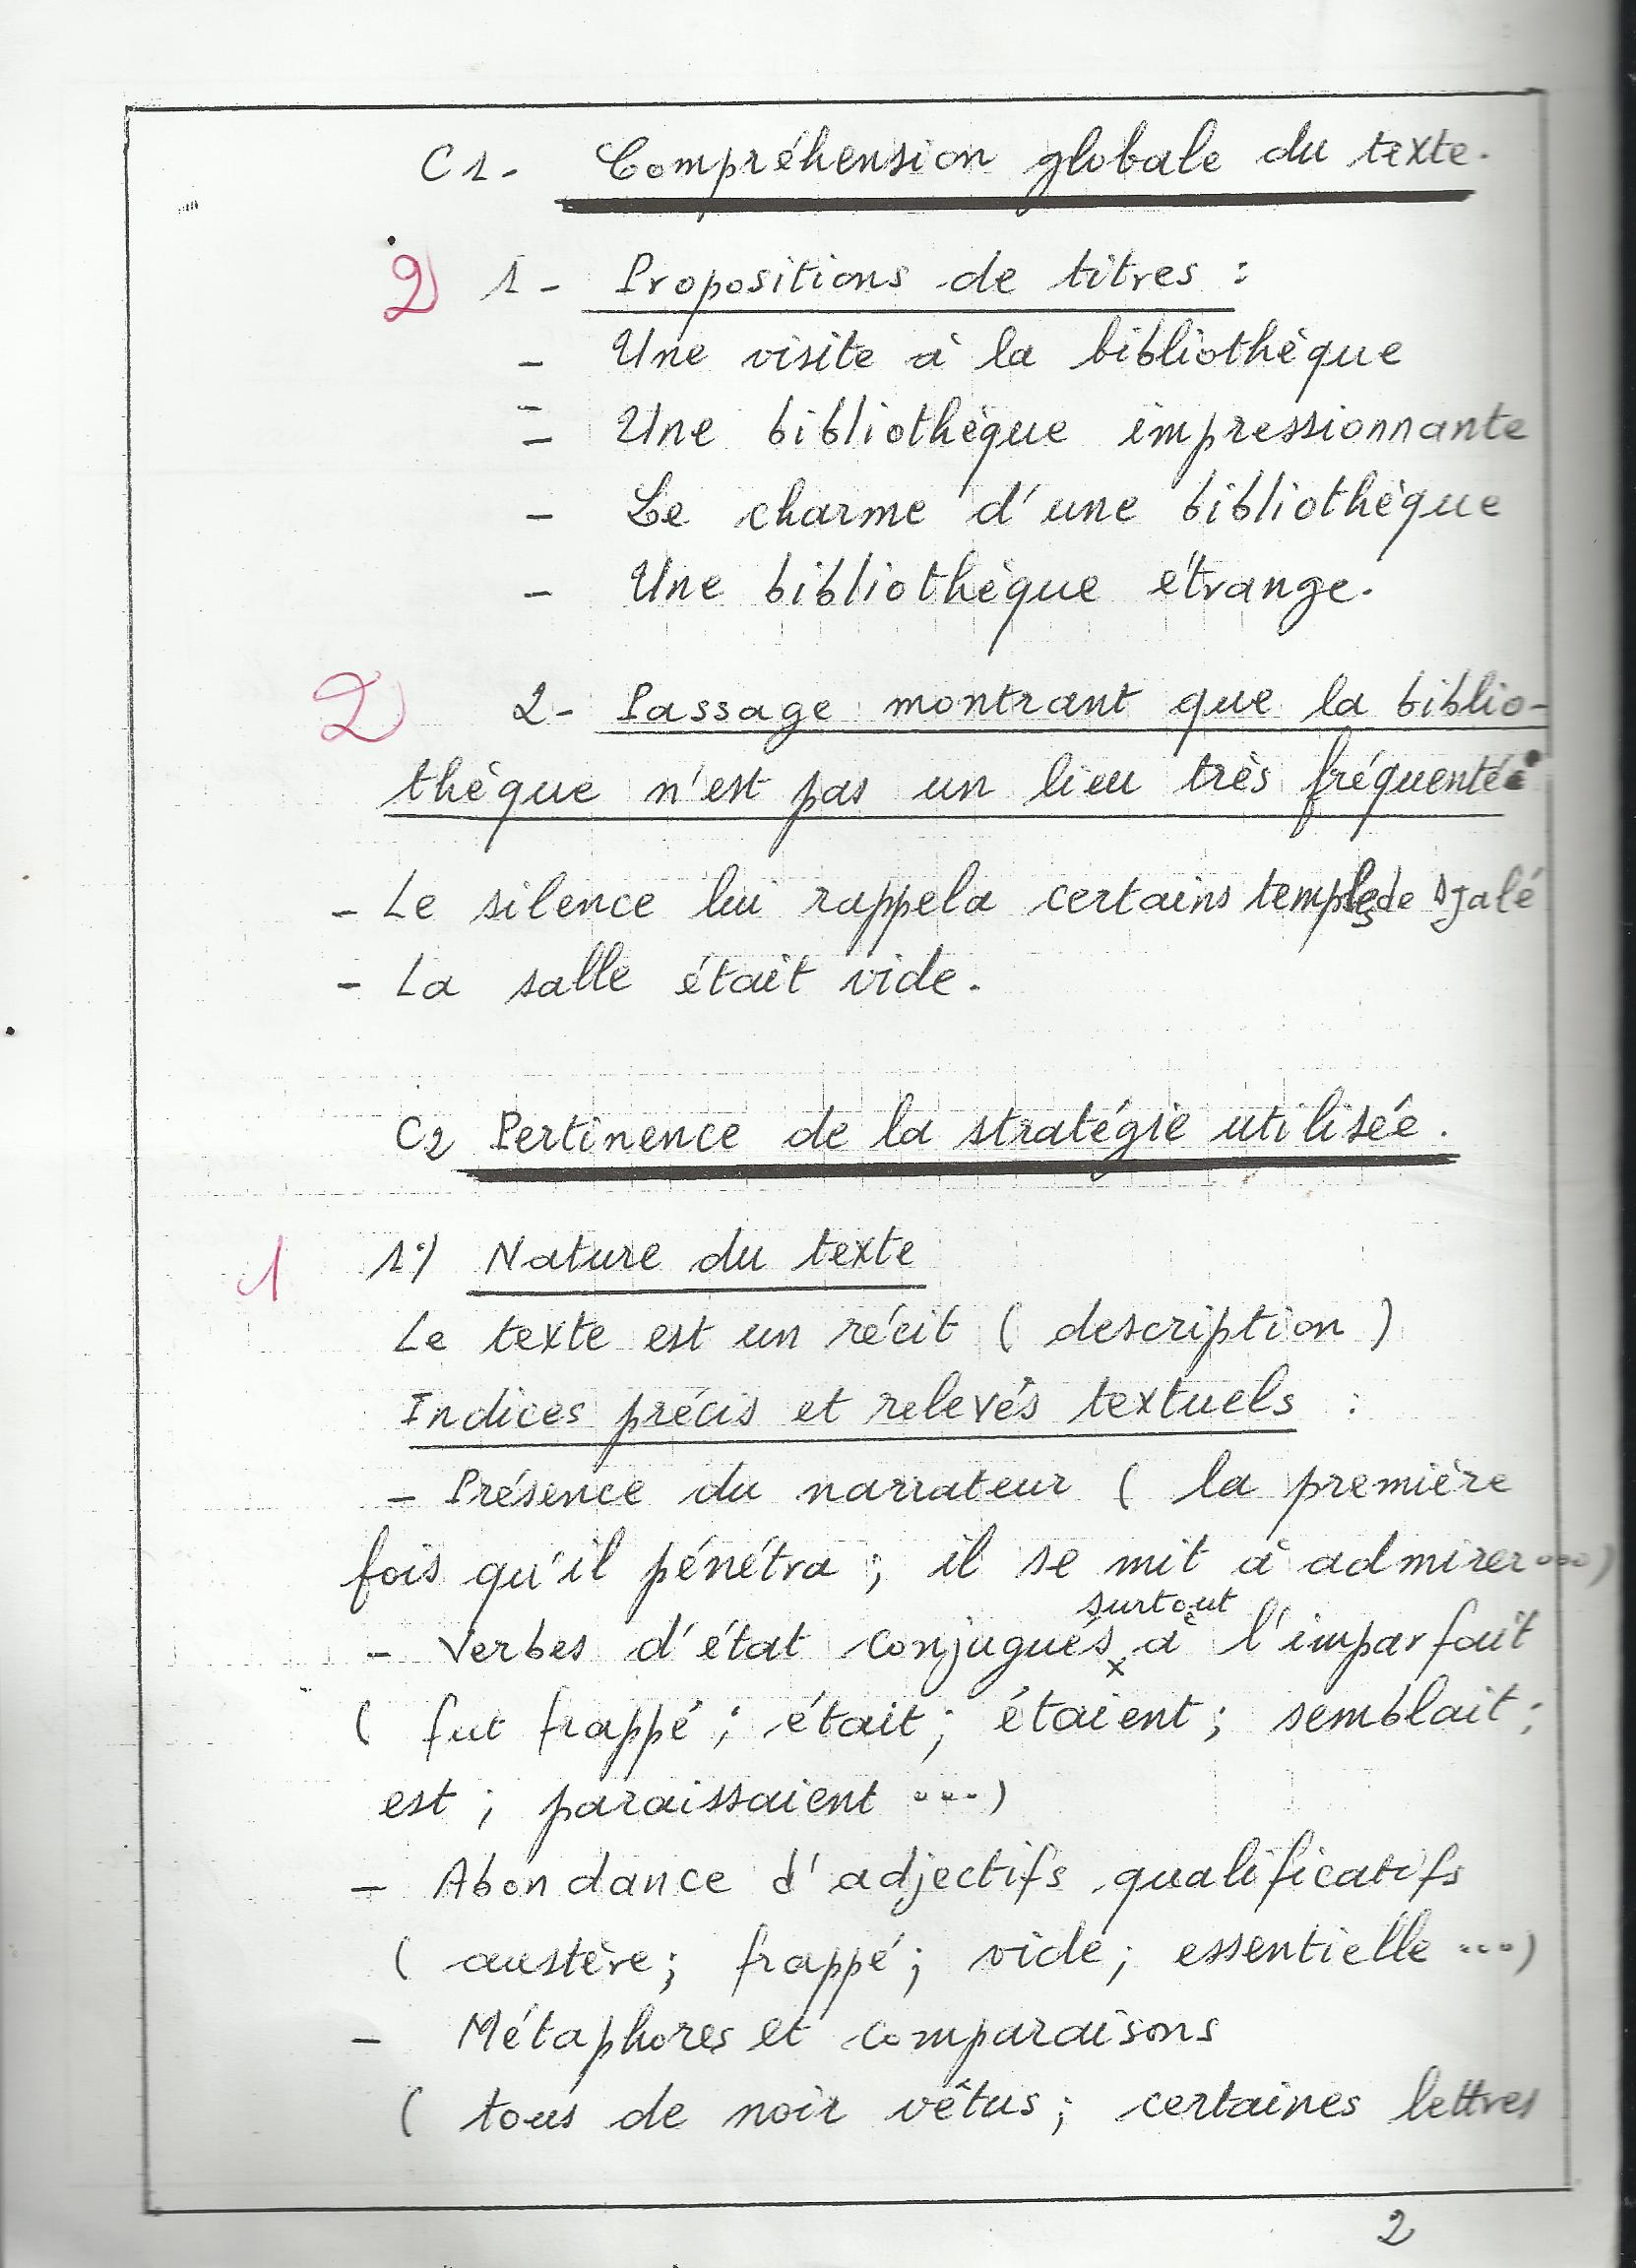 C1- Compréhension globale du texte.
2 1- Propositions de titres :
- Une visite à la bibliothèque
- Une bibliothèque impressionnante
- Le charme d'une bibliothèque
- Une bibliothèque étrange.
2 2- Passage montrant que la biblio-
thèque n'est pas un lieu très fréquenté :
- Le silence lui rappela certains temples de Djalé
- La salle était vide.
C2 Pertinence de la stratégie utilisée.
1 1°) Nature du texte
Le texte est un récit ( description )
Indices précis et relevés textuels :
- Présence du narrateur ( la première
fois qu'il pénétra ; il se mit à admirer ...)
surtout
- Verbes d'état conjugués x à l'imparfait
( fut frappé ; était ; étaient ; semblait ;
est ; paraissaient ...)
- Abondance d'adjectifs qualificatifs
( austère ; frappé ; vide ; essentielle ...)
- Métaphores et comparaisons
( tous de noir vêtus ; certaines lettres
2